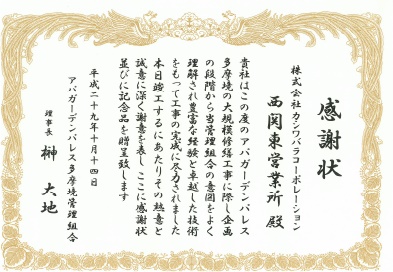 感謝状
株式会社カシワバラコーポレーション
西関東営業所 殿
貴社はこの度のアパガーデンパレス
多摩境の大規模修繕工事に際し企画
の段階から当管理組合の意図をよく
理解され豊富な経験と卓越した技術
をもって工事の完成に尽力されました
本日竣工するにあたりその熱意と
誠意に深く謝意を表し ここに感謝状
並びに記念品を贈呈致します
平成二十九年十月十四日
アパガーデンパレス多摩境管理組合
理事長 榊 大地